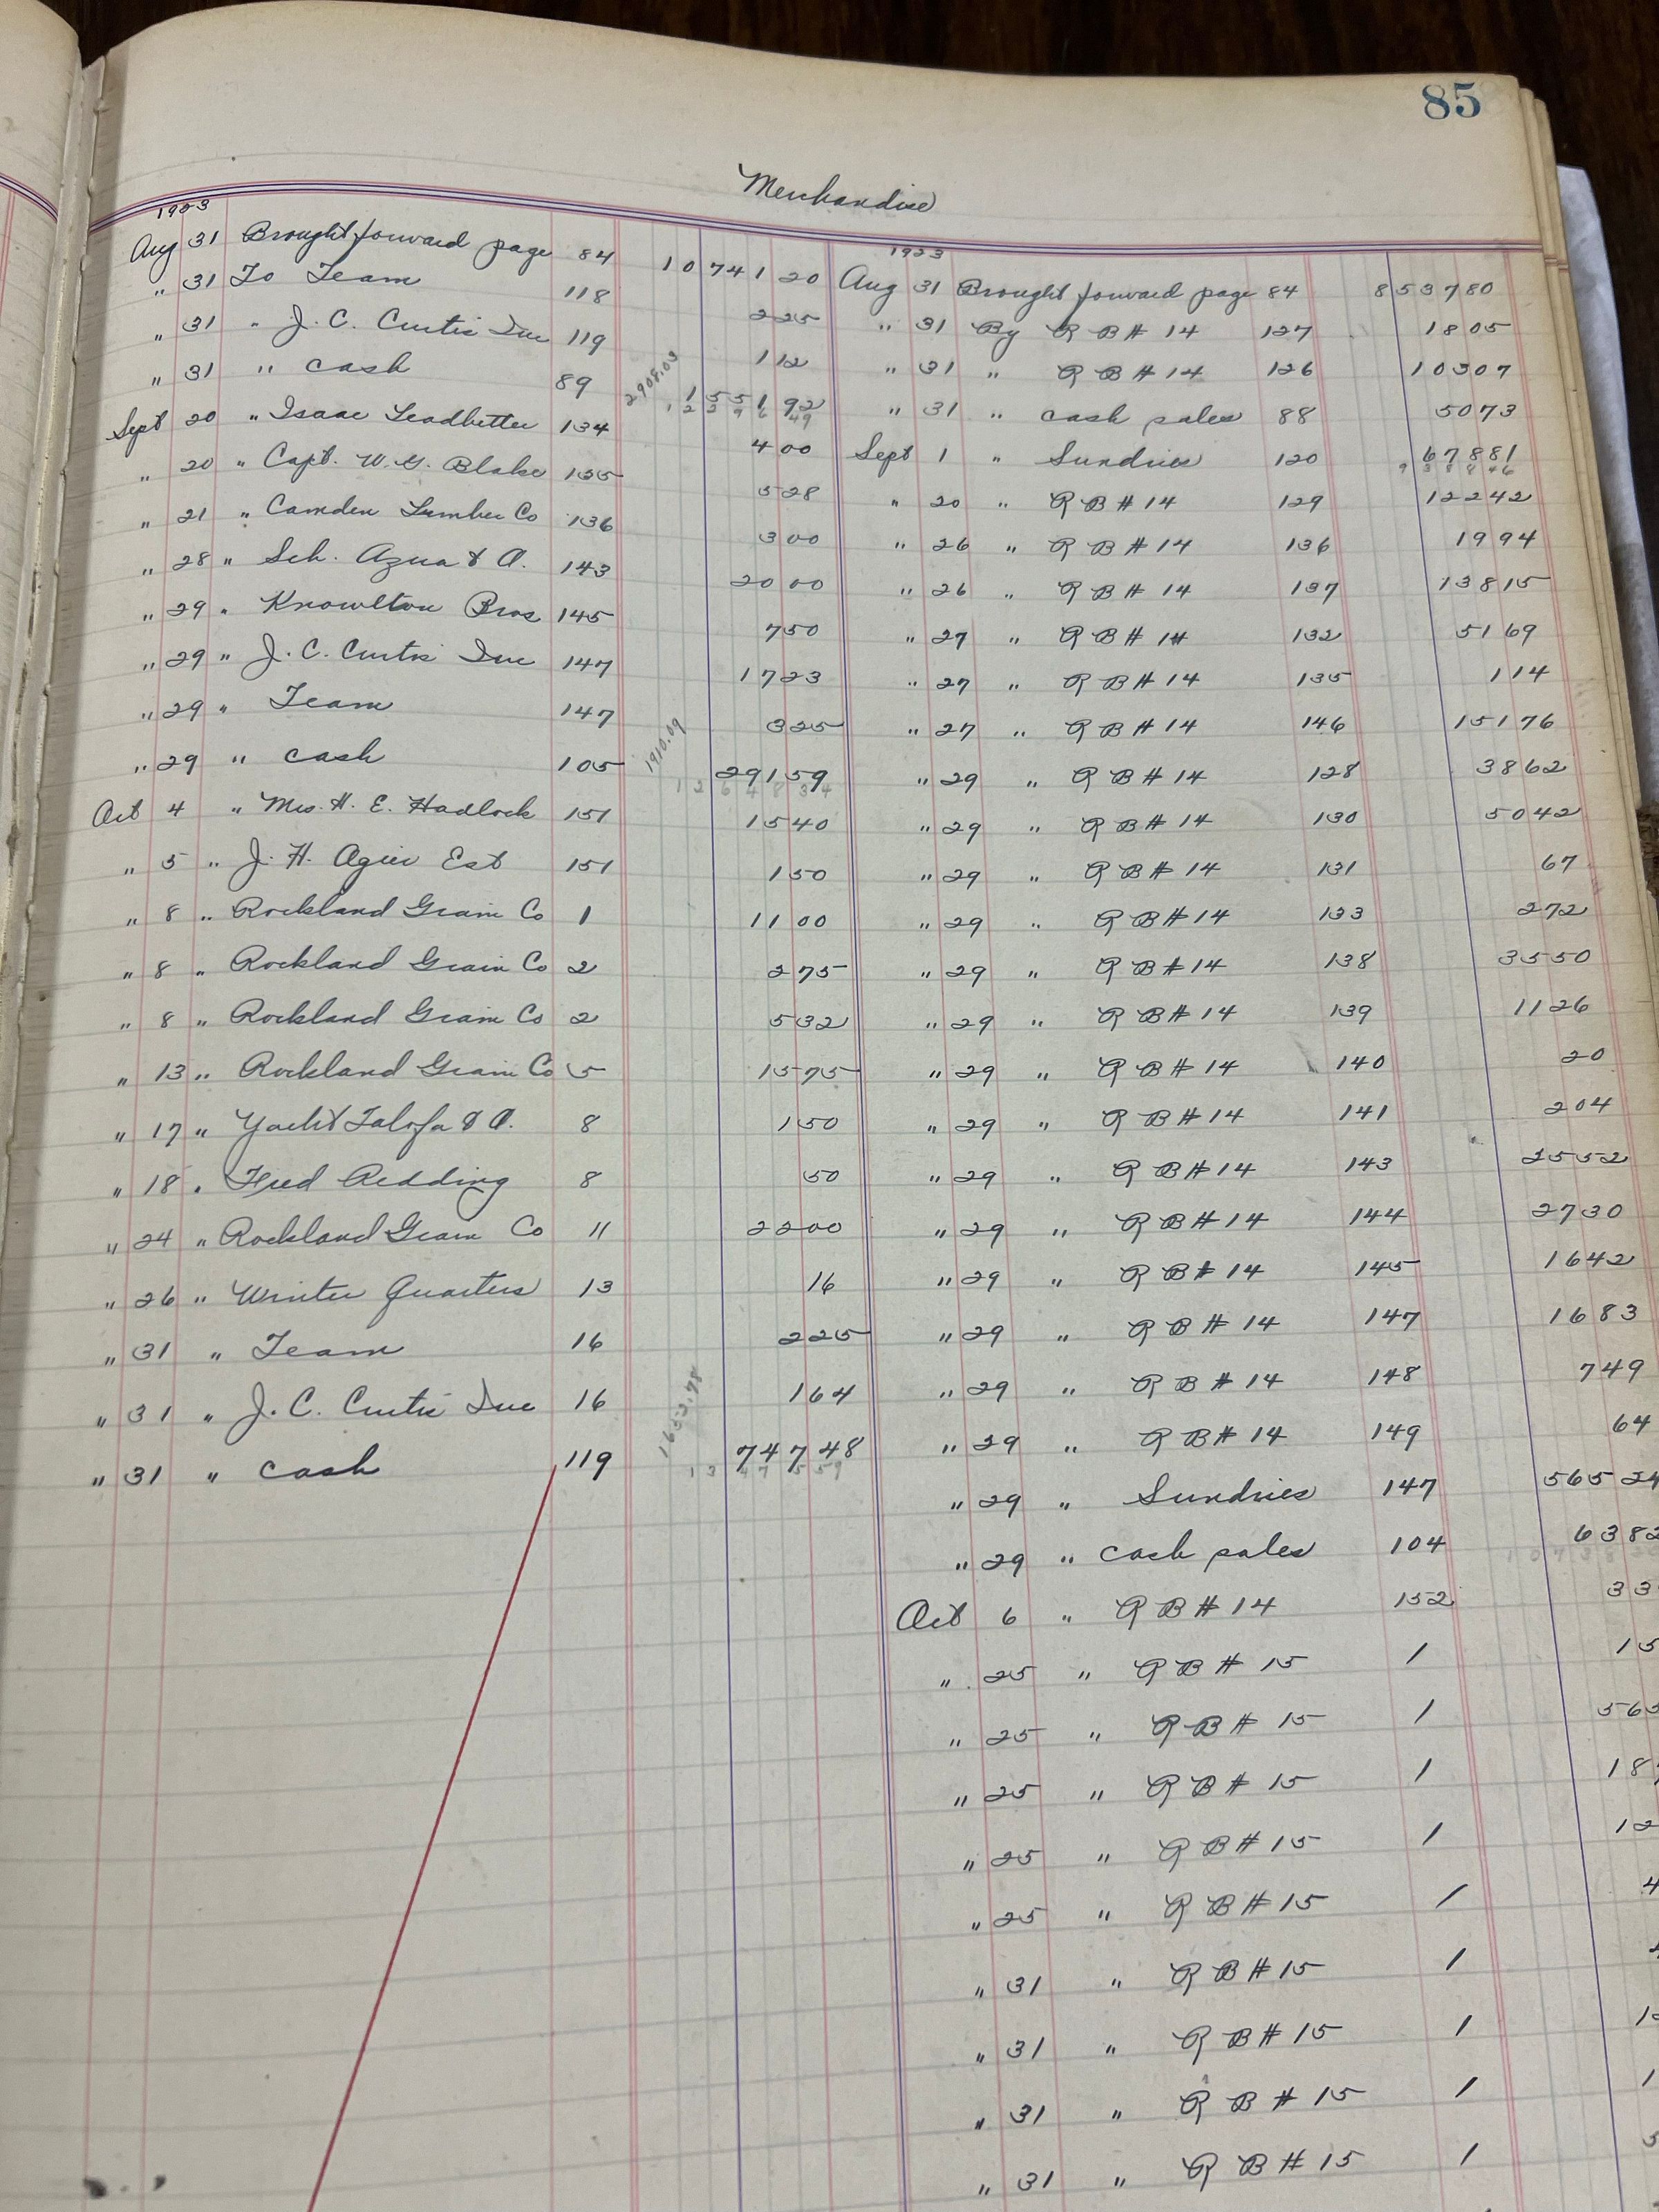 85
Merchandise
1923
Aug 31 Brought forward page 84 10 741 20
" 31 To Team 118 2 25
" 31 " J. C. Curtis Inc 119 1 12
" 31 " cash 89 2908.03 1551 92
12296 49
Sept 20 " Isaac Leadbetter 134 4 00
" 20 " Capt. W. G. Blake 135 5 28
" 21 " Camden Lumber Co 136 3 00
" 28 " Sch. Azua & O. 143 20 00
" 29 " Knowlton Bros 145 7 50
" 29 " J. C. Curtis Inc 147 17 23
" 29 " Team 147 3 25
" 29 " cash 105 1910.09 291 59
12648 34
Oct 4 " Mrs. H. E. Hadlock 151 15 40
" 5 " J. H. Agier Est 151 1 50
" 8 " Rockland Grain Co 1 11 00
" 8 " Rockland Grain Co 2 2 75
" 8 " Rockland Grain Co 2 5 32
" 13 " Rockland Grain Co 5 15 75
" 17 " Yacht Talofa & O. 8 1 50
" 18 " Fred Redding 8 50
" 24 " Rockland Grain Co 11 22 00
" 26 " Winter Quarters 13 16
" 31 " Team 16 2 25
" 31 " J. C. Curtis Inc 16 1 64
" 31 " cash 119 1632.78 747 48
13475 59
1923
Aug 31 Brought forward page 84 8537 80
" 31 By R B # 14 127 18 05
" 31 " R B # 14 126 103 07
" 31 " cash sales 88 50 73
Sept 1 " Sundries 120 678 81
9388 46
" 20 " R B # 14 129 122 42
" 26 " R B # 14 136 19 94
" 26 " R B # 14 137 138 15
" 27 " R B # 14 132 51 69
" 27 " R B # 14 135 1 14
" 27 " R B # 14 146 151 76
" 29 " R B # 14 128 38 62
" 29 " R B # 14 130 50 42
" 29 " R B # 14 131 67
" 29 " R B # 14 133 2 72
" 29 " R B # 14 138 35 50
" 29 " R B # 14 139 11 26
" 29 " R B # 14 140 20
" 29 " R B # 14 141 2 04
" 29 " R B # 14 143 25 52
" 29 " R B # 14 144 27 30
" 29 " R B # 14 145 16 42
" 29 " R B # 14 147 16 83
" 29 " R B # 14 148 7 49
" 29 " R B # 14 149 64
" 29 " Sundries 147 565 24
" 29 " cash sales 104 63 82
Oct 6 " R B # 14 152 33
" 25 " R B # 15 1 15
" 25 " R B # 15 1 565
" 25 " R B # 15 1 18
" 25 " R B # 15 1 12
" 25 " R B # 15 1 4
" 31 " R B # 15 1
" 31 " R B # 15 1
" 31 " R B # 15 1
" 31 " R B # 15 1